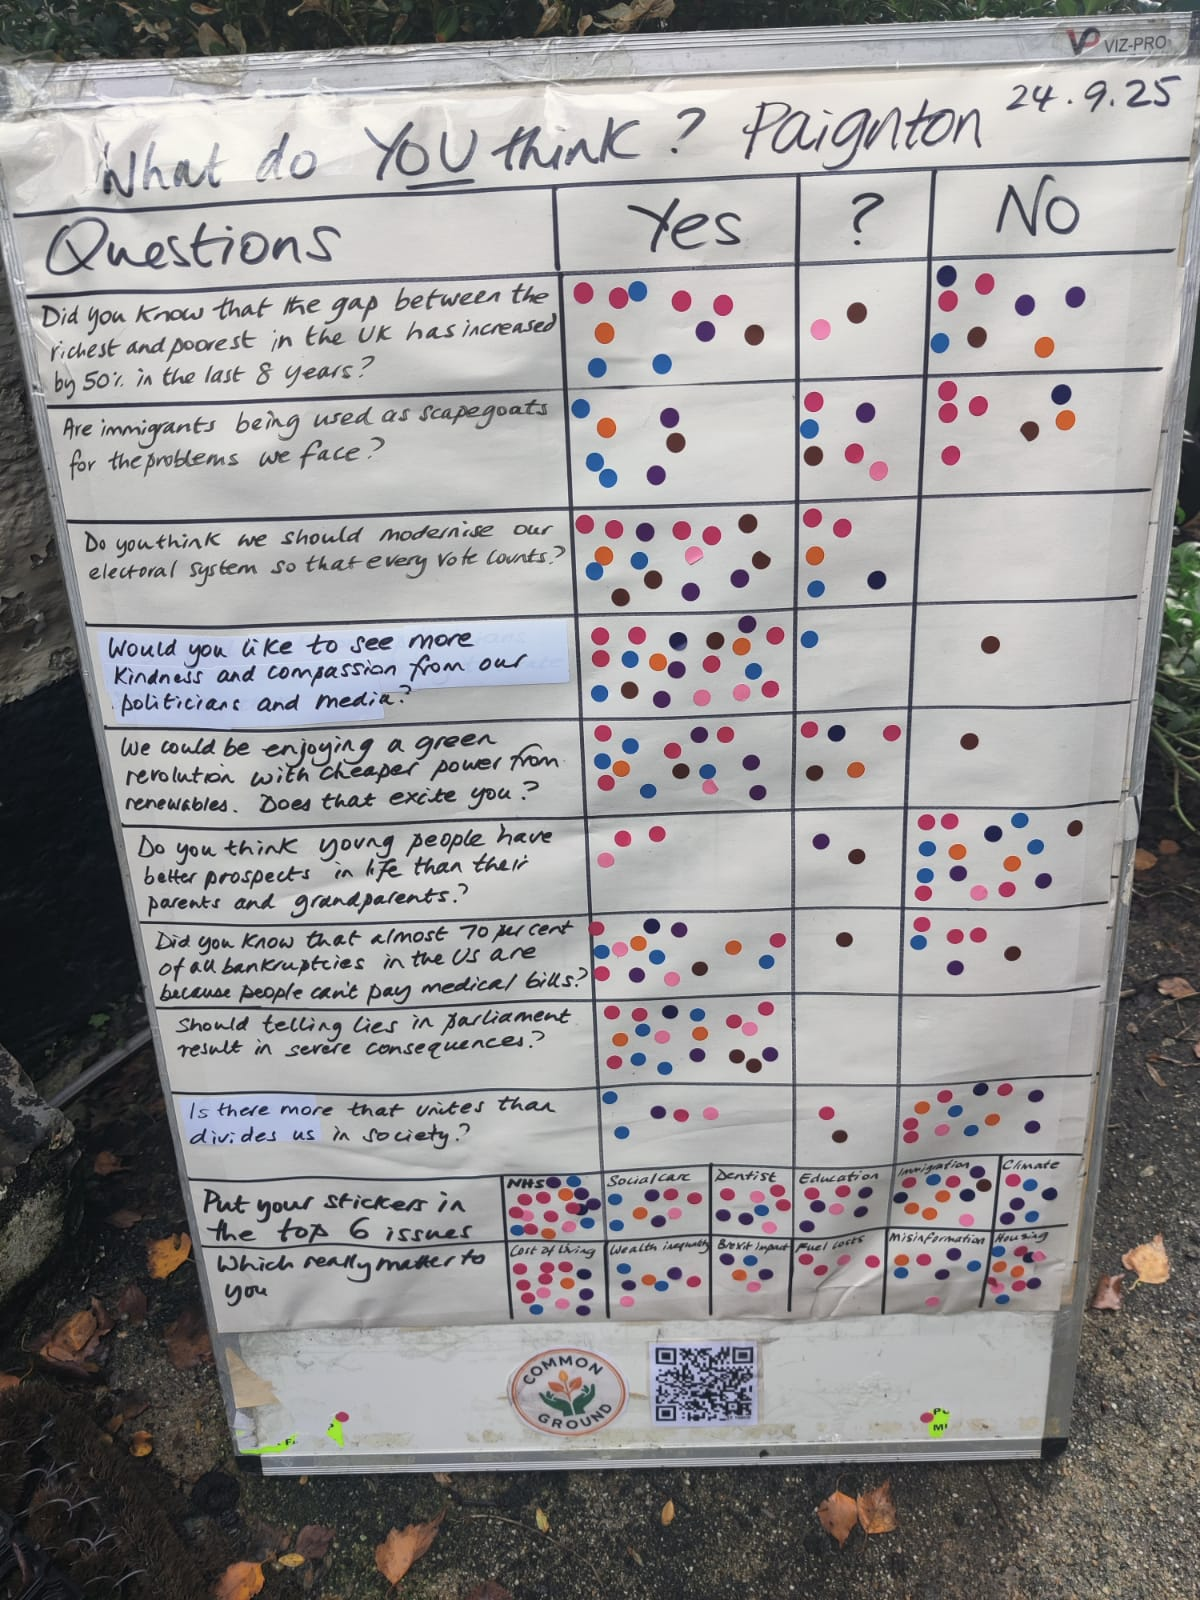 VIZ-PRO
What do YOU think? Paignton 24.9.25
Questions
Yes
?
No
Did you know that the gap between the
richest and poorest in the UK has increased
by 50% in the last 8 years?
Are immigrants being used as scapegoats
for the problems we face?
Do you think we should modernise our
electoral system so that every vote counts?
Would you like to see more
kindness and compassion from our
politicians and media?
We could be enjoying a green
revolution with cheaper power from
renewables. Does that excite you?
Do you think young people have
better prospects in life than their
parents and grandparents?
Did you know that almost 70 per cent
of all bankruptcies in the US are
because people can't pay medical bills?
Should telling lies in parliament
result in severe consequences?
Is there more that unites than
divides us in society?
Put your stickers in
the top 6 issues
Which really matter to
you
NHS
Social care
Dentist
Education
Immigration
Climate
Cost of living
Wealth inequality
Brexit impact
Fuel costs
Misinformation
Housing
COMMON
GROUND